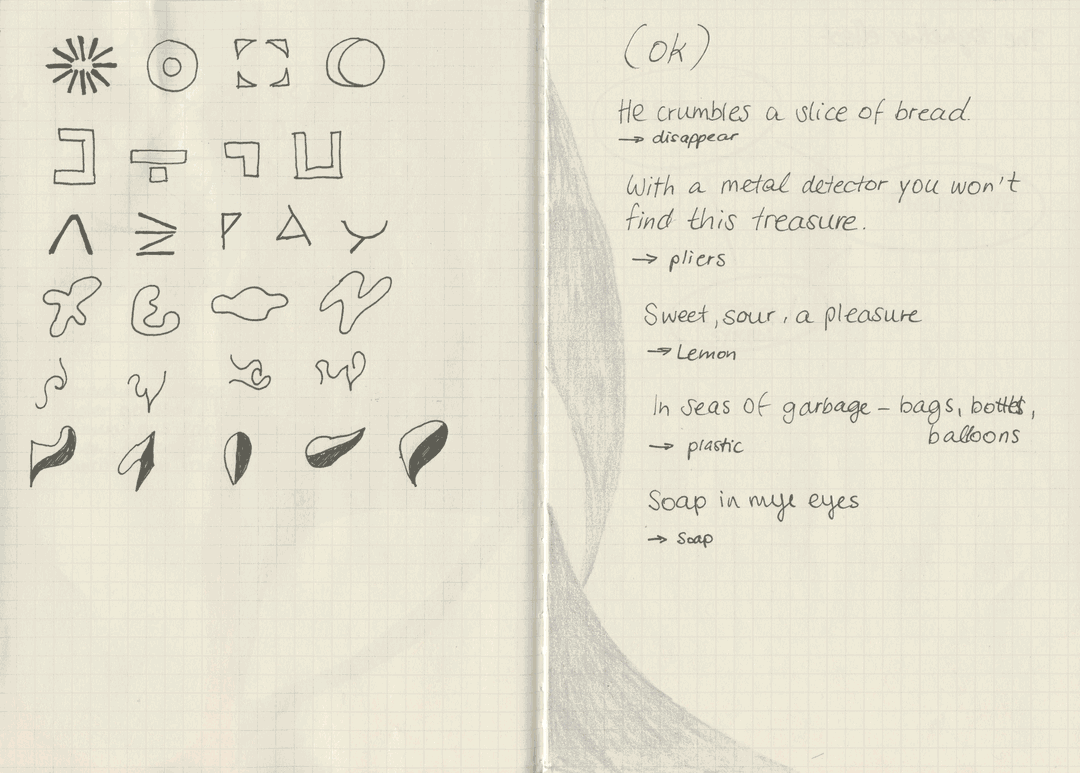 (ok)
He crumbles a slice of bread.
→ disappear
With a metal detector you won't
find this treasure.
→ pliers
Sweet, sour, a pleasure
→ Lemon
In seas of garbage – bags, bottles,
balloons
→ plastic
Soap in mye eyes
→ Soap